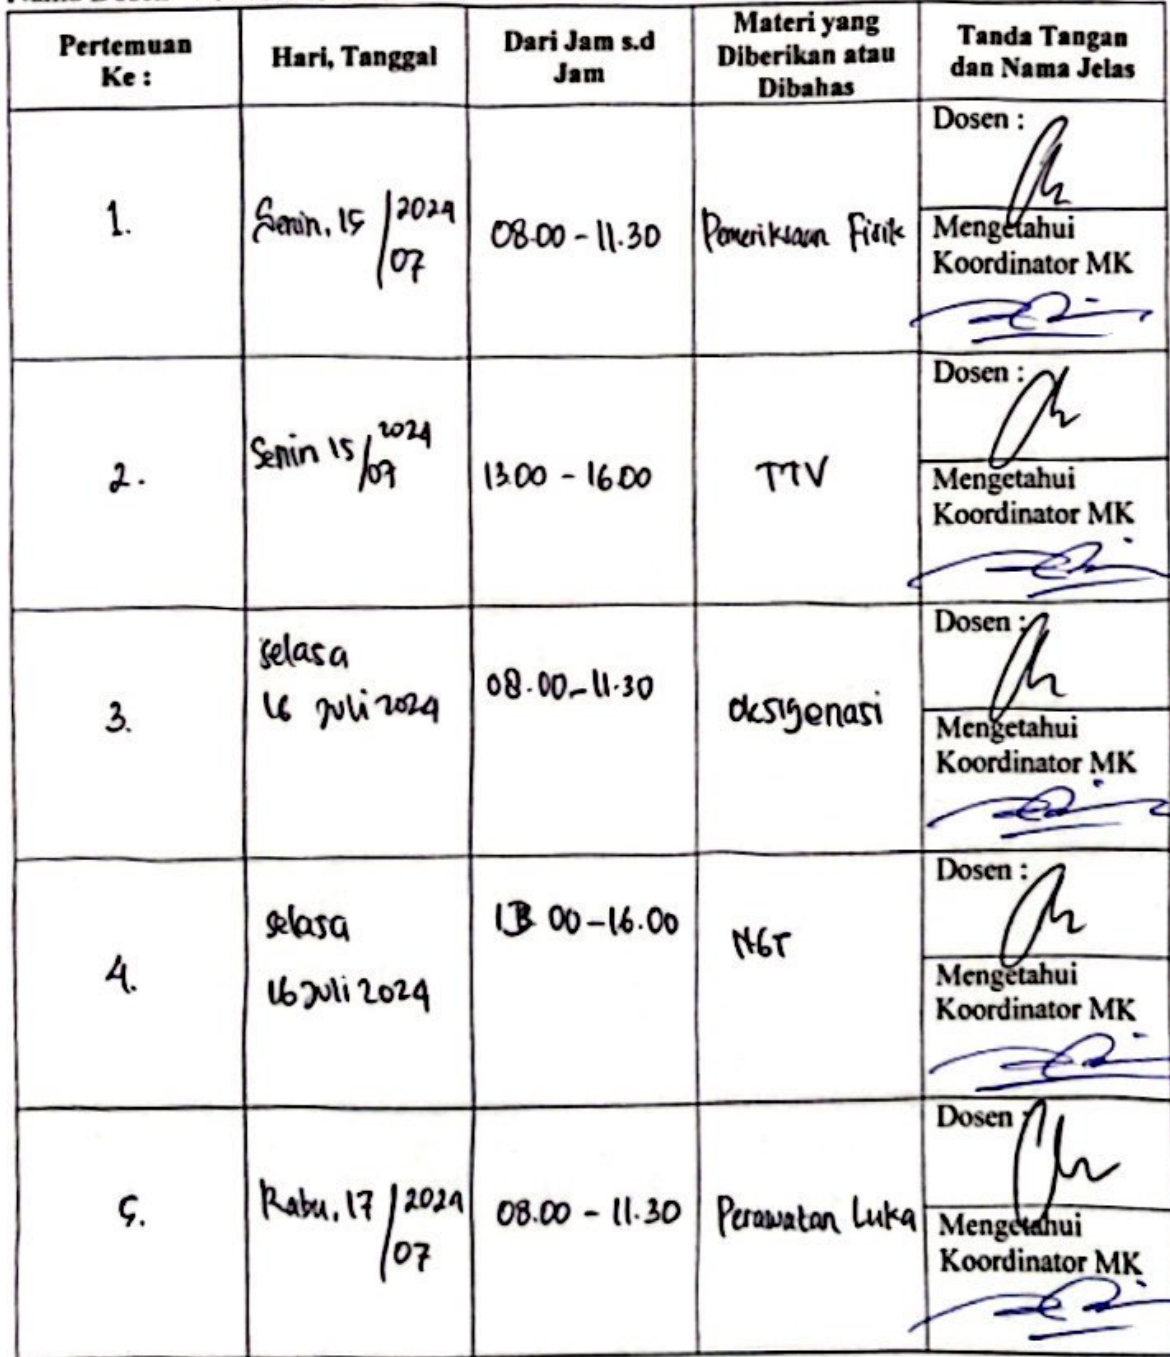 Pertemuan
Ke :
Hari, Tanggal
Dari Jam s.d
Jam
Materi yang
Diberikan atau
Dibahas
Tanda Tangan
dan Nama Jelas
1.
Senin, 15 /2024
07
08.00 - 11.30
Pemeriksaan Fisik
Dosen :
Mengetahui
Koordinator MK
2.
Senin 15/2024
07
13.00 - 16.00
TTV
Dosen :
Mengetahui
Koordinator MK
3.
selasa
16 Juli 2024
08.00-11.30
oksigenasi
Dosen :
Mengetahui
Koordinator MK
4.
selasa
16 Juli 2024
13 00-16.00
NGT
Dosen :
Mengetahui
Koordinator MK
5.
Rabu, 17 /2024
07
08.00 - 11.30
Perawatan Luka
Dosen :
Mengetahui
Koordinator MK